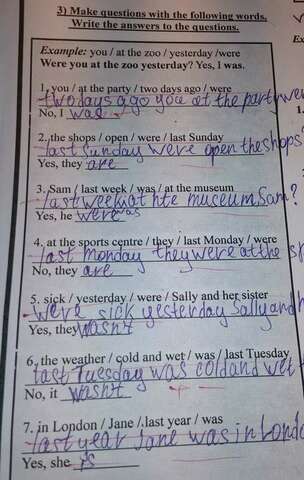 3) Make questions with the following words.
Write the answers to the questions.
Example: you / at the zoo / yesterday /were
Were you at the zoo yesterday? Yes, I was.
1. you / at the party / two days ago / were
two days ago you at the party wer
No, I was
2. the shops / open / were / last Sunday
last Sunday were open the shops
Yes, they are
3. Sam / last week / was / at the museum
last week at hte museum Sam?
Yes, he
4. at the sports centre / they / last Monday / were
last monday they were at the sp
No, they are
5. sick / yesterday / were / Sally and her sister
were sick yesterday Sally and h
Yes, they wasn't
6, the weather / cold and wet / was / last Tuesday
last Tuesday was cold and wet t
No, it wasn't
7. in London / Jane / last year / was
last year Jane was in Londo
Yes, she is